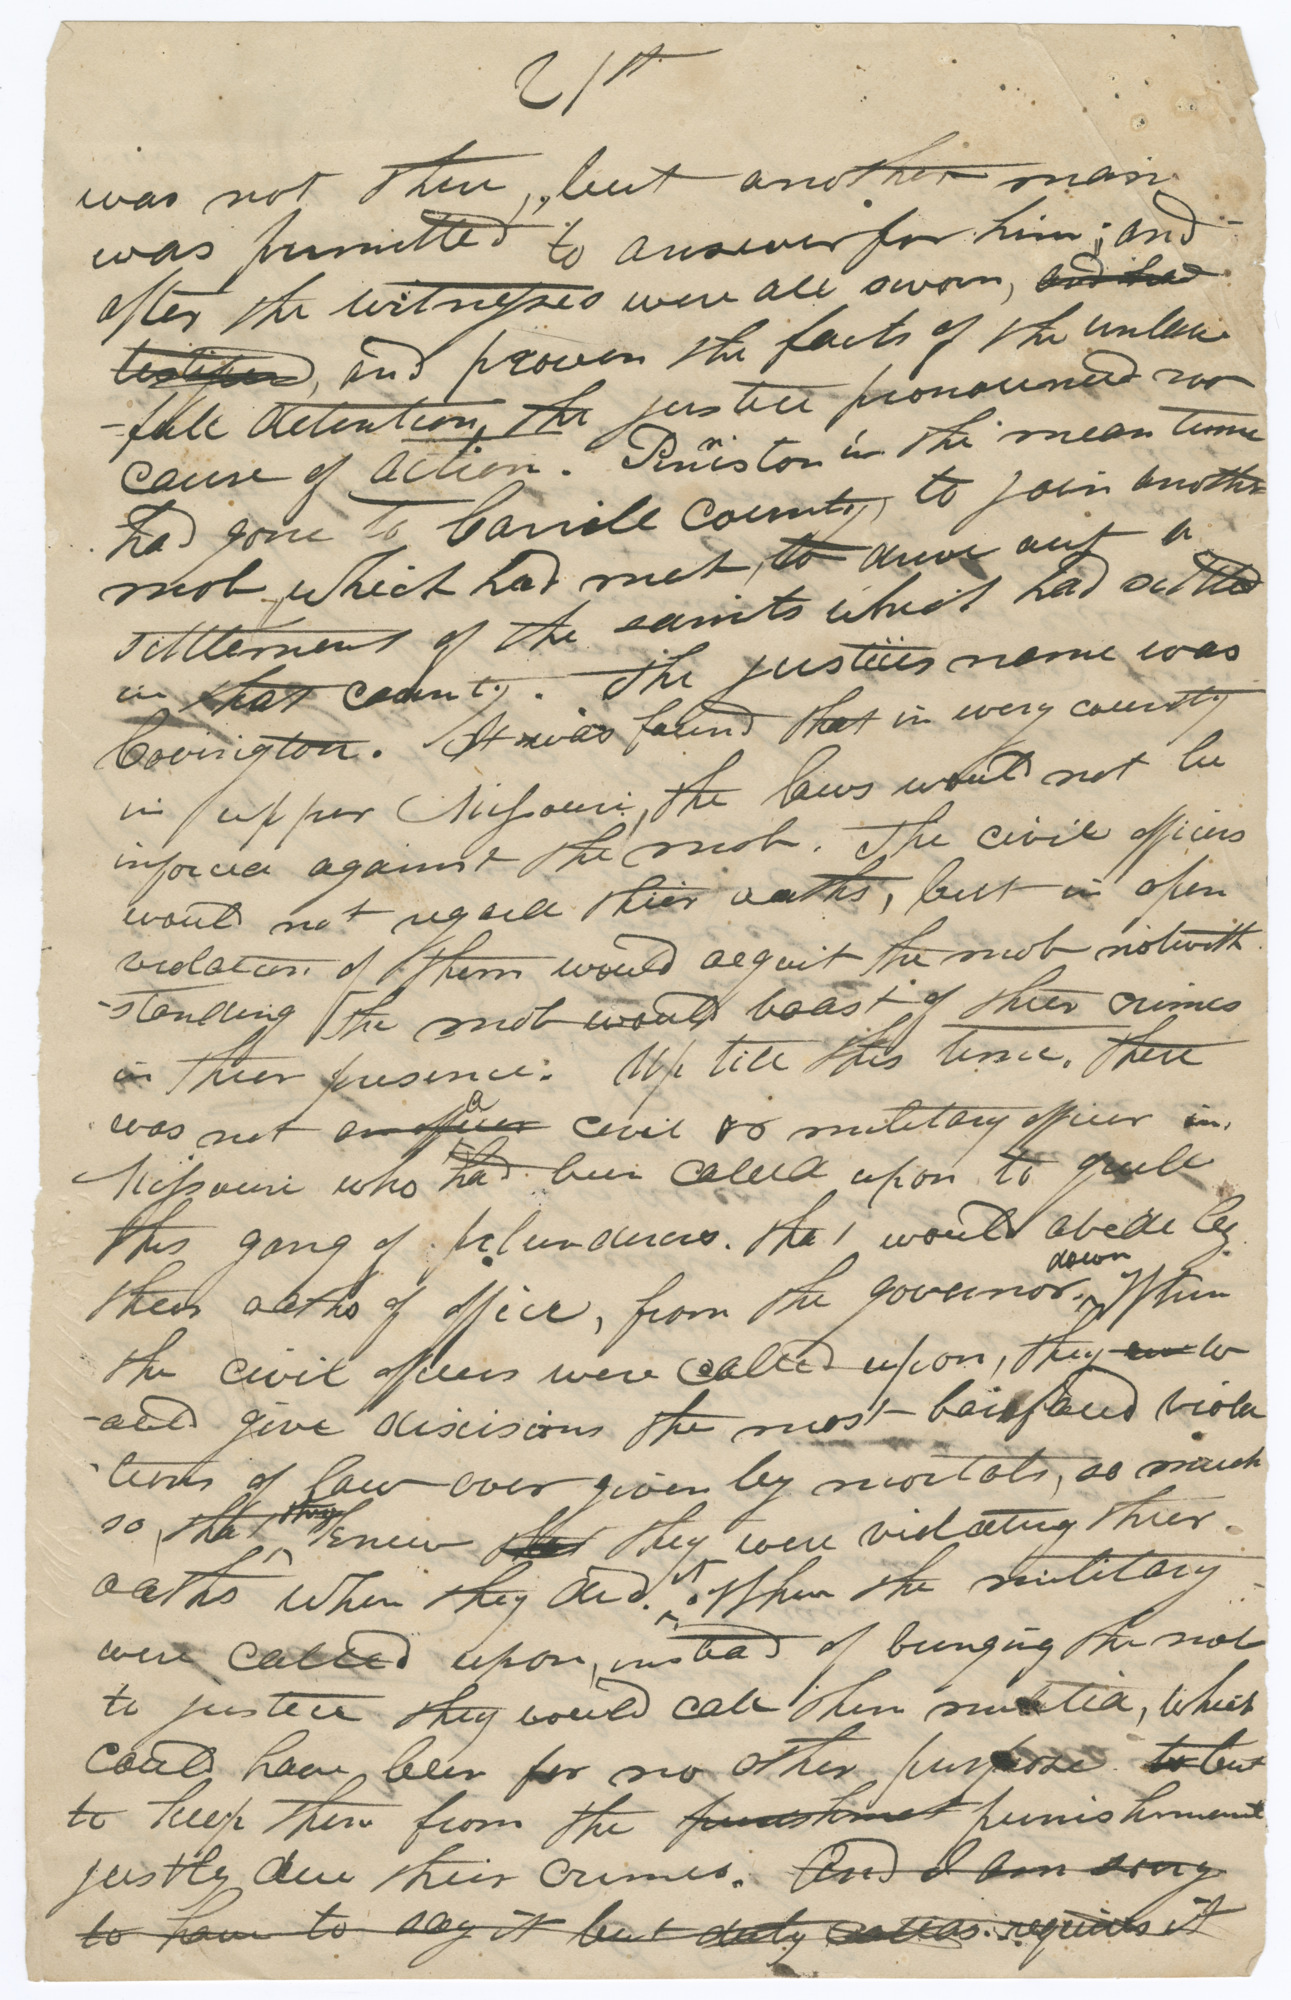 21st
was not there, but another man
was permitted to answer for him; and
after the witnesses were all sworn, and had
testified, and proven the facts of the unlaw
-full detention, the justice pronounced no
cause of action. Penniston in the mean time
had gone to Carrile county, to join another
mob which had met, to drive out a
settlement of the saints which had settled
in that county. The justices name was
Covington. It was found that in every county
in upper Missouri, the laws would not be
inforced against the mob. The civil officers
would not regard thier oaths, but in open
violation of them would acquit the mob notwith
-standing the mob would boast of thier crimes
in thier presence. Up till this time, there
was not an officer a civil or military officer in
Missouri who had been called upon to quell
this gang of plunderers. that would abide by
their oaths of office, from the governor down. When
the civil officers were called upon, they wo
-uld give discisions the most bairfaced viola
tions of law ever given by mortals, so much
so, that they knew that they were violating thier
oaths when they did it. When the military
were called upon, instead of bringing the mob
to justice they would call them militia, which
could have been for no other purpose to but
to keep them from the punishmet punishment
justly due their crimes. And I am sorry
to have to say it but duty requires it